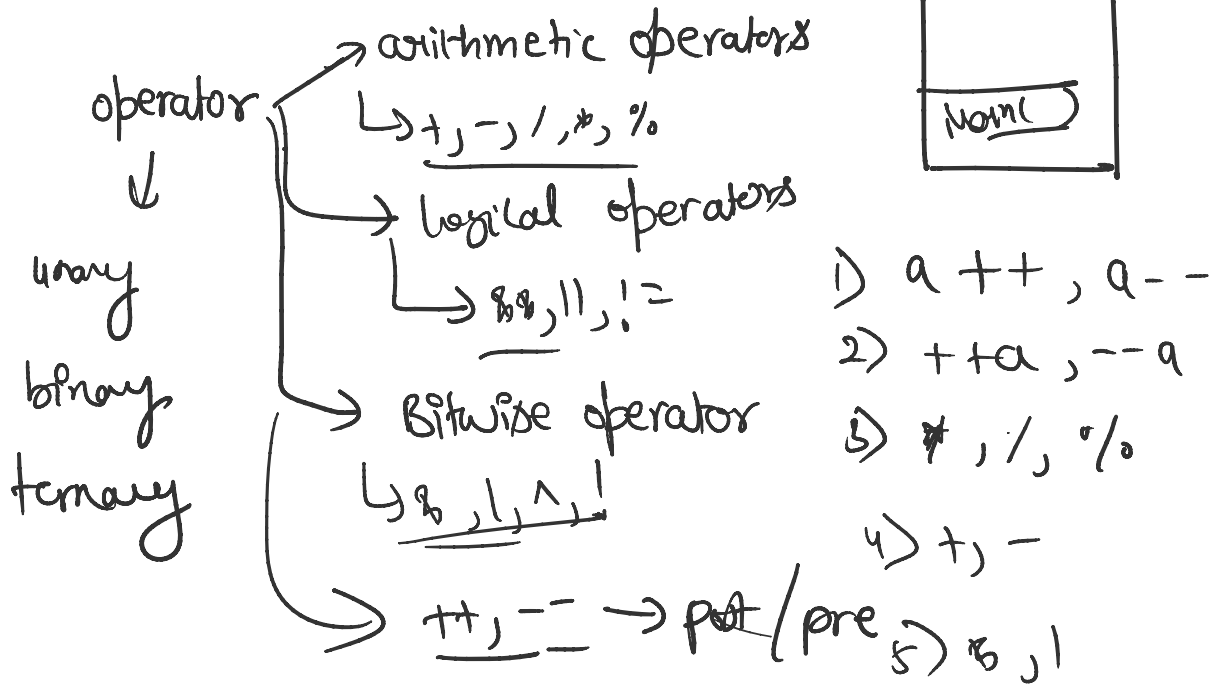 operator
↓
unary
binary
ternary
→ arithmetic operators
↳ +, -, /, *, %
→ Logical operators
→ &&, ||, !=
→ Bitwise operator
↳ &, |, ^, !
→ ++, -- → post/pre
Main(
1) a++, a--
2) ++a, --a
3) *, /, %
4) +, -
5) &, |